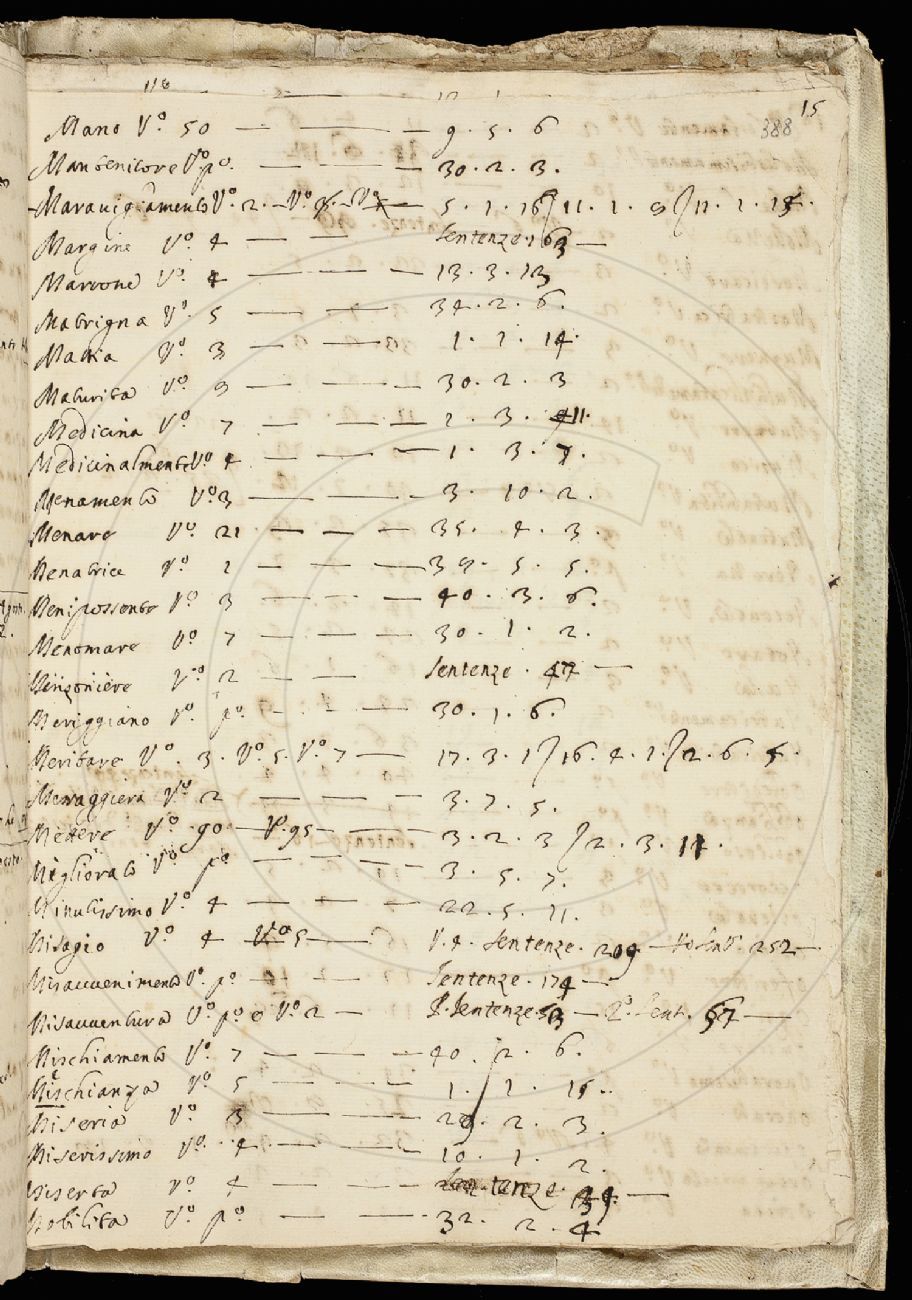 116
15
388
Mano Vº. 50 — — 9. 5. 6
Mantenitore Vº pº. — — 30. 2. 3.
Maravigliamento Vº. 2. Vº. 5. 1. 16 / 11. 1. 9 / 11. 1. 15.
Margine Vº. 4 — — Sentenze. 163 —
Marrone Vº. 4 — — 13. 3. 13
Matrigna Vº. 5 — — 34. 2. 6.
Vº. 3 — — 1. 1. 14.
Maturita Vº. 9 — — 30. 2. 3
Medicina Vº. 7 — — 2. 3. 11.
Medicinalmente Vº. 4 — — 1. 3. 7.
Menamento Vº 3 — — 3. 10. 2.
Menare Vº. 21 — — 35. 4. 3.
Menatrice Vº. 2 — — 39. 5. 5.
Menipossente Vº. 3 — — 40. 3. 6.
Menomare Vº. 7 — — 30. 1. 2.
Menzoniere Vº 2 — — Sentenze. 47 —
Meriggiano Vº. pº. — — 30. 1. 6.
Meritare Vº. 3. Vº. 5. Vº. 7 — 17. 3. 1 / 16. 4. 1. / 2. 6. 5.
Messaggiera Vº. 2 — — 3. 7. 5.
Mettere Vº. 90 — Vº. 95 — 3. 2. 3 / 2. 3. 11.
Migliorato Vº. pº. — — 3. 5. 7.
Minutissimo Vº. 4 — — 22. 5. 11.
Misagio Vº. 4 Vº 5 — V. 4. Sentenze. 209 — Sent. 252 —
Misavvenimento Vº. pº. — — Sentenze. 174 —
Misavventura Vº. pº e Vº. 2 — P. Sentenze 53 — 2º. Sent. 67 —
Mischiamento Vº. 7 — — 40. 2. 6.
Mischianza Vº. 5 — — 1. 1. 15.
Miseria Vº. 3 — — 29. 2. 3.
Miserissimo Vº. 4 — — 10. 1. 2.
Vº. 4 — — Sentenze. —
Mobilita Vº. pº. — — 32. 2. 4